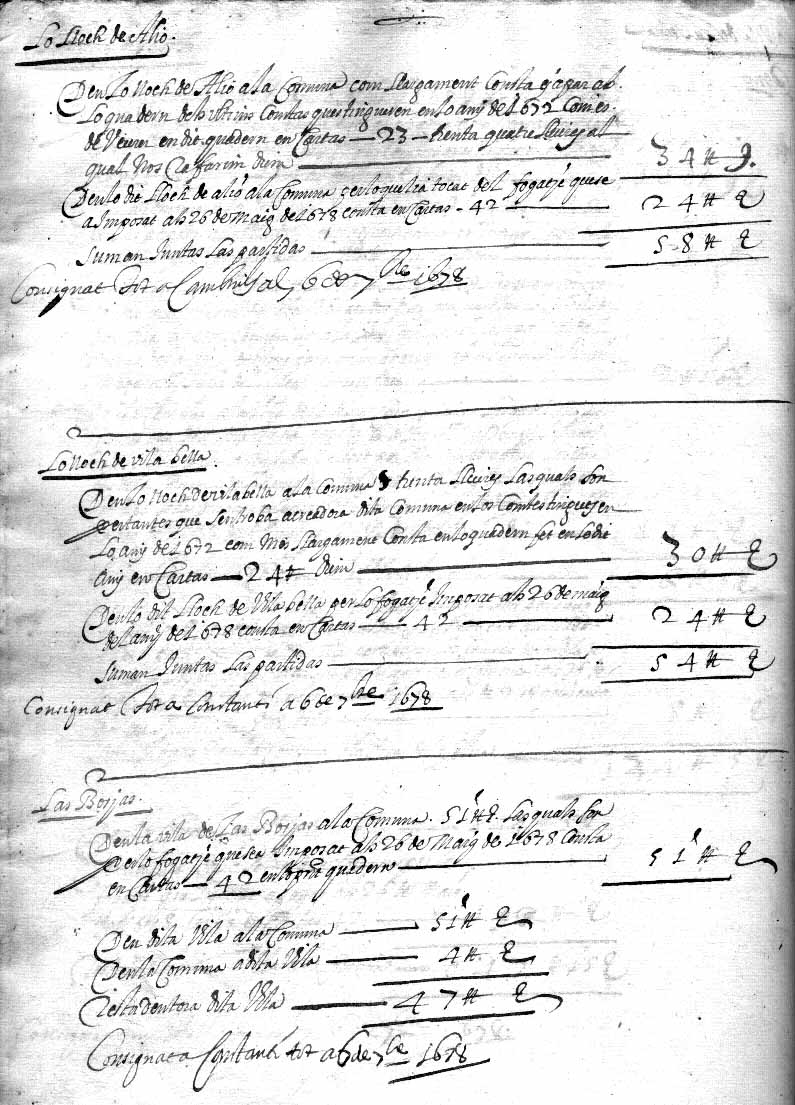 Lo Lloch de Alio.
Deu Lo lloch de Alio a la Comuna com Llargament Consta
Lo quadern dels ultims Comtas que tingueren en lo any de 1672
de Veurer en dit quadern en Cartas — 23 — trenta quatre lliures al
qual Nos dium — 34 ⩩
Deu lo dit Lloch de alio a la Comuna per lo que li a tocat del fogatje que se
a Imposat als 26 de Maig de 1678 consta en Cartas - 42 — 24 ⩩
Suman Juntas Las partidas — 58 ⩩
Consignat tot a 6 de 7bre 1678
Lo lloch de vila bella.
Deu Lo lloch de vilabella a la Comuna trenta lliures Las quals son
restantes que sen troba acreadora dita Comuna en los Comtes tinguts en
Lo any de 1672 com mes Llargament Consta en lo quadern fet en lo dit
Any en Cartas — 24 dium — 30 ⩩
Deu lo dit Lloch de Vila bella per Lo fogatje Imposat als 26 de maig
del any de 1678 consta en Cartas — 42 — 24 ⩩
Suman Juntas Las partidas — 54 ⩩
Consignat tot a Constanti a 6 de 7bre 1678
Las Borjas.
Deu la vila de Las Borjas a la Comuna. 51 ⩩. Las quals son
Per lo fogatje que se a Imposat als 26 de Maig de 1678 Consta
en Cartas — 42 en lo quedern — 51 ⩩
Deu dita Vila a la Comuna — 51 ⩩
Deu la Comuna a dita Vila — 4 ⩩
Resta deutora dita Vila — 47 ⩩
Consignat a Constanti tot a 6 de 7bre 1678